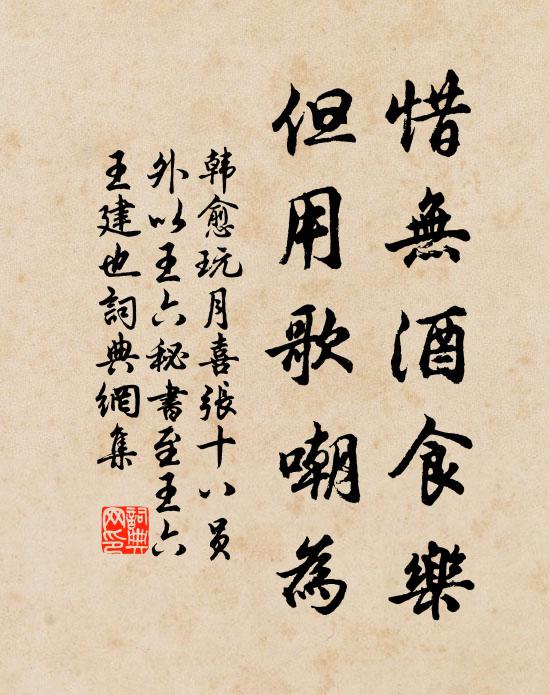 惜無酒食樂
但用歌嘲為
韩愈玩月喜張十八員
外以王六秘書至王六
王建也詞典網集
詞典
网印